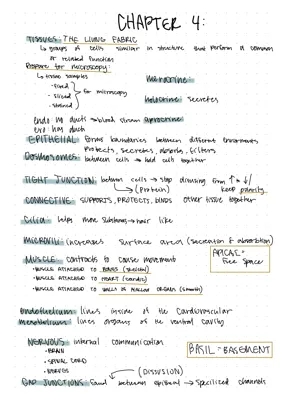 CHAPTER 4:
TISSUES THE LIVING FABRIC
↳ groups of cells similar in structure that perform a common
or related function
Prepare for microscopy:
↳ tissue samples
- fixed
- sliced
- stained
for microscopy
merocrine
holocrine secretes
endo no ducts → blood stream apocrine
exo has duct
EPITHELIAL forms boundaries between different environments
protects, secretes, absorbs, filters
Desmosomes between cells → hold cells together
TIGHT JUNCTION between cells → stop diffusing from ↑ → ↓/
↳ (protein) keep polarity
CONNECTIVE SUPPORTS, PROTECTS, BINDS other tissue together
Cilia helps move substances → hair like
MICROVILLI increases surface area (secretion & absorption)
APICAL =
Free Space
MUSCLE contracts to cause movement
• MUSCLE ATTACHED TO BONES (skeletal)
• MUSCLE ATTACHED TO HEART (cardiac)
• MUSCLE ATTACHED TO WALLS OF HOLLOW ORGANS (smooth)
Endothelium lines inside of the cardiovascular
mesothelium lines organs of the ventral cavity
NERVOUS internal communication
• BRAIN
• SPINAL CORD
• NERVES
BASIL = BASEMENT
(DIFFUSION)
GAP JUNCTIONS found between epithelial → specialized channels